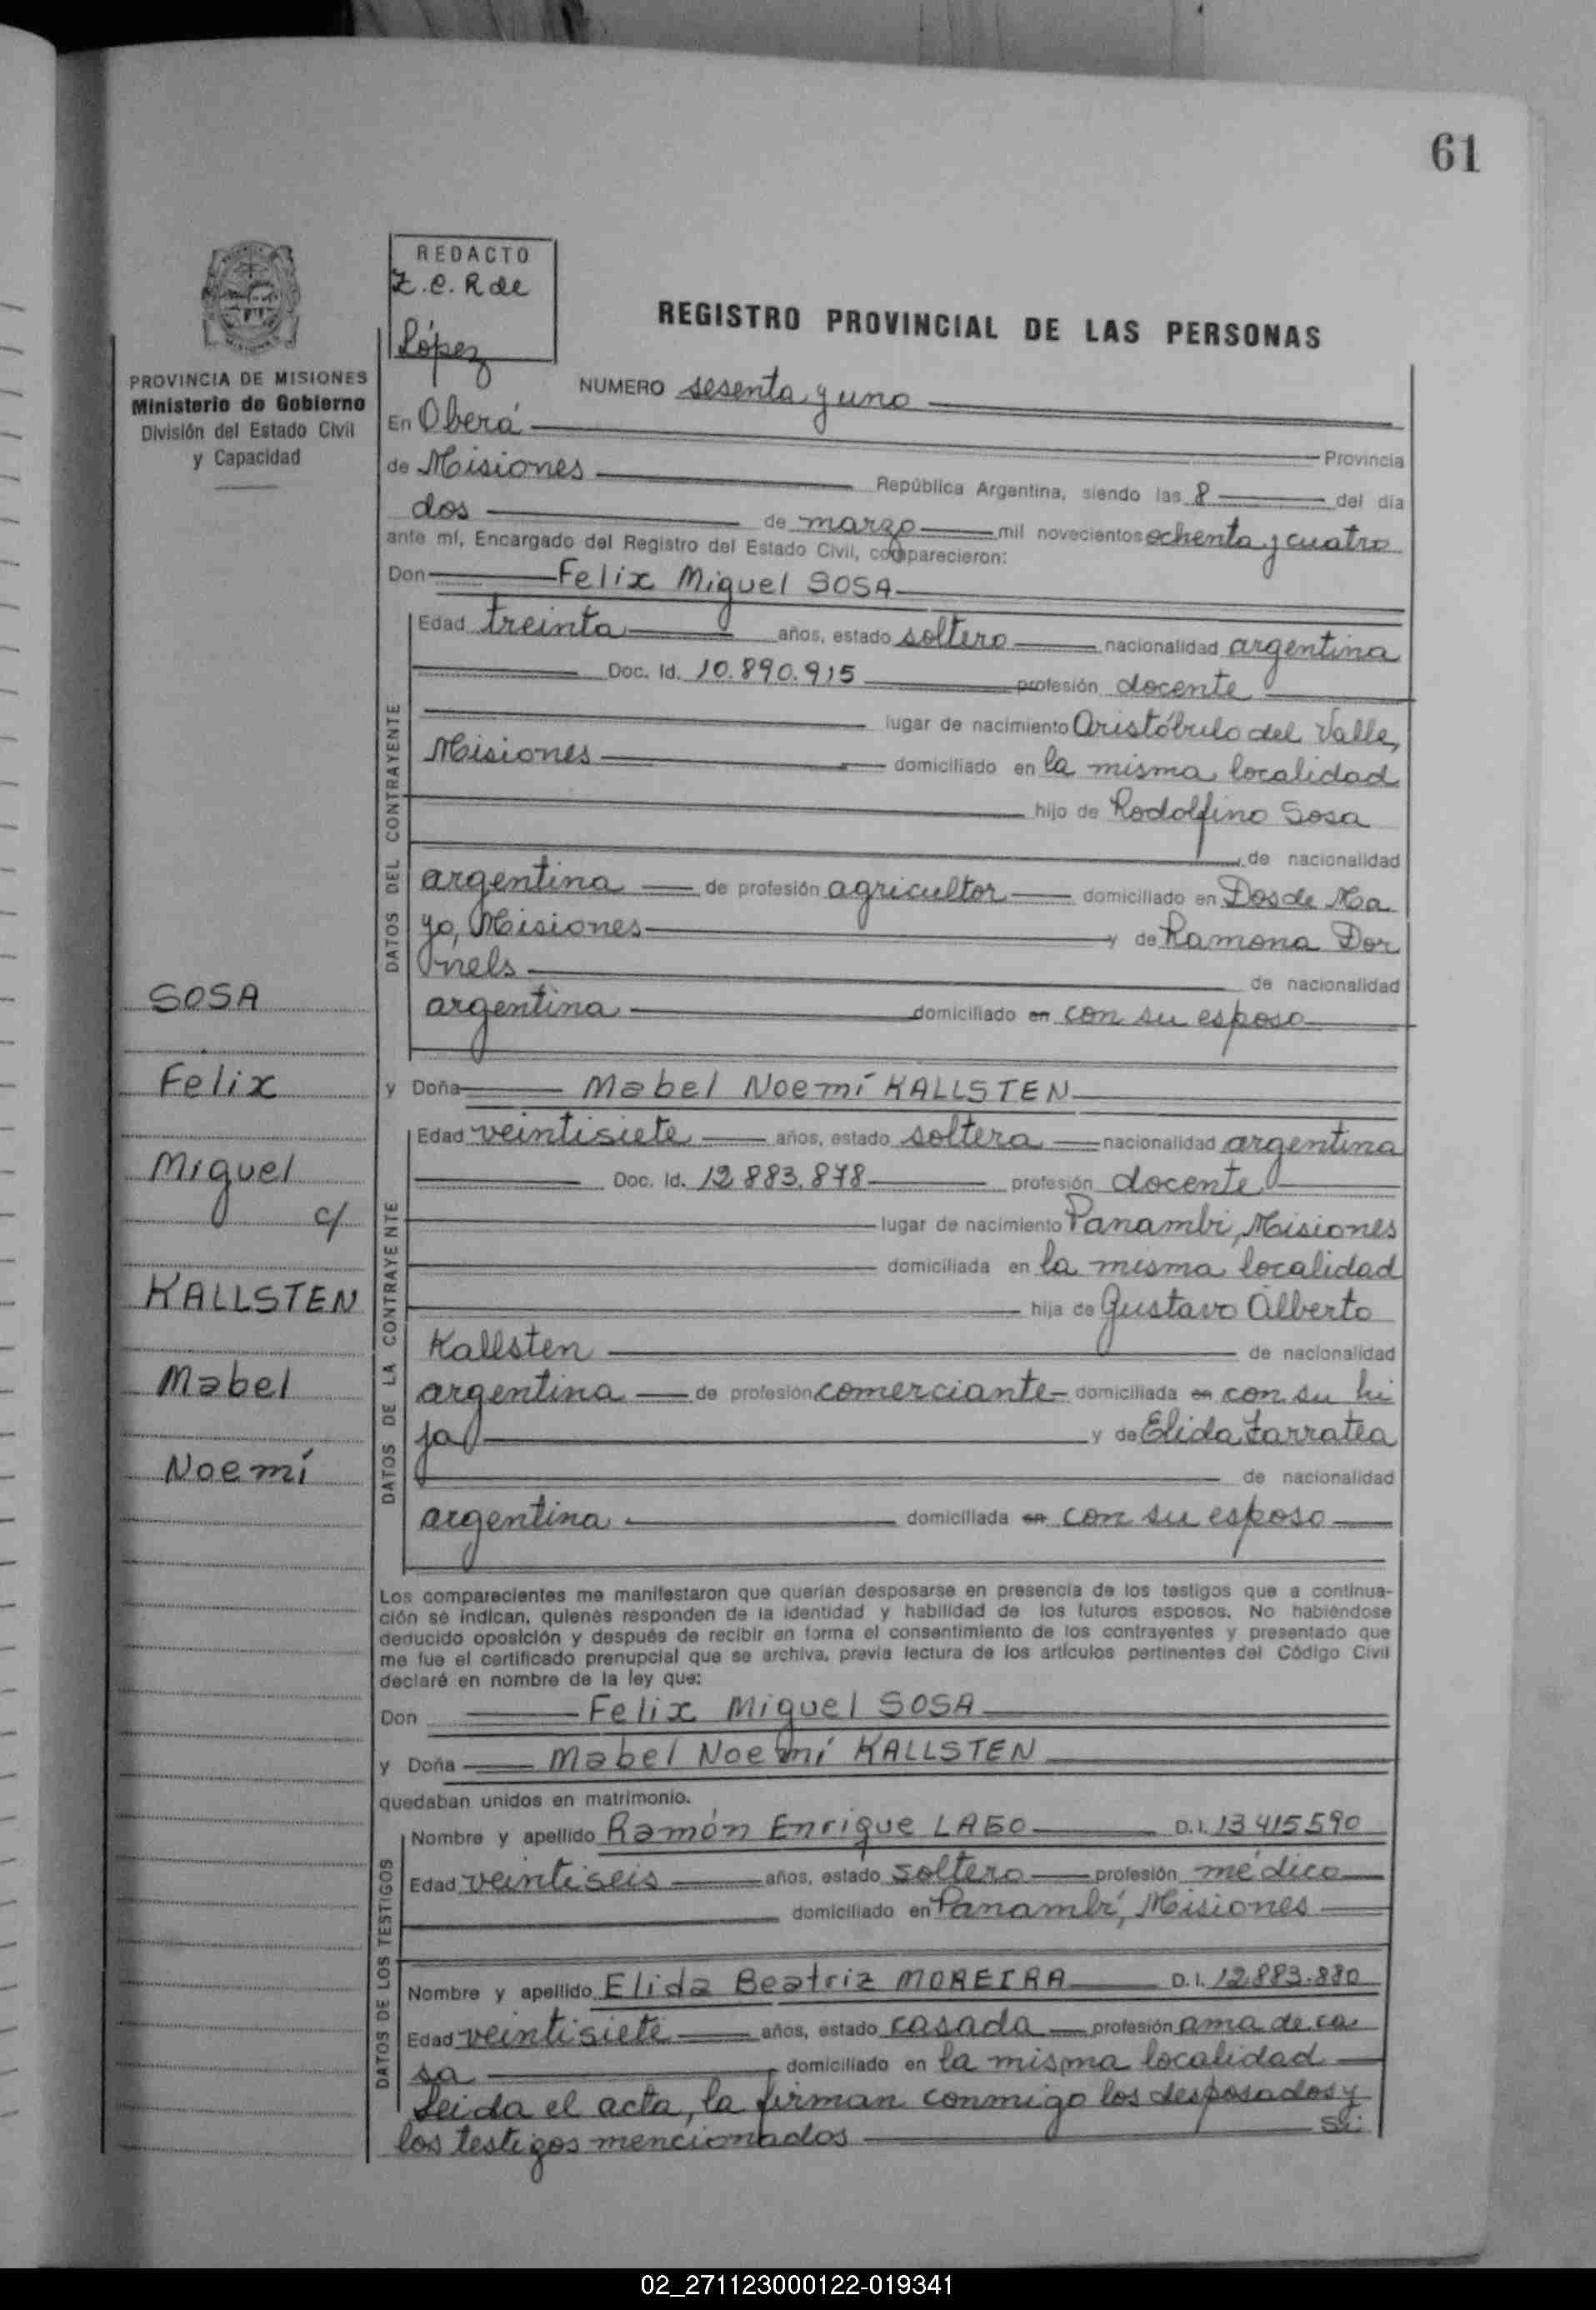 61
REDACTO
Z.C.R de
López
REGISTRO PROVINCIAL DE LAS PERSONAS
PROVINCIA DE MISIONES
Ministerio de Gobierno
División del Estado Civil
y Capacidad
NUMERO sesenta y uno
En Oberá Provincia
de Misiones República Argentina, siendo las 8 del día
dos de marzo mil novecientos ochenta y cuatro
ante mí, Encargado del Registro del Estado Civil, comparecieron:
Don Felix Miguel SOSA
DATOS DEL CONTRAYENTE
Edad treinta años, estado soltero nacionalidad argentina
Doc. Id. 10.890.915 profesión docente
lugar de nacimiento Aristóbulo del Valle,
Misiones domiciliado en la misma localidad
hijo de Rodolfino Sosa
de nacionalidad
argentina de profesión agricultor domiciliado en Dos de Ma
yo, Misiones y de Ramona Dor
nels de nacionalidad
argentina domiciliado en con su esposo
SOSA
Felix
Miguel
c/
KALLSTEN
Mabel
Noemí
y Doña Mabel Noemí KALLSTEN
DATOS DE LA CONTRAYENTE
Edad veintisiete años, estado soltera nacionalidad argentina
Doc. Id. 12.883.878 profesión docente
lugar de nacimiento Panambi, Misiones
domiciliada en la misma localidad
hija de Gustavo Alberto
Kallsten de nacionalidad
argentina de profesión comerciante domiciliada en con su hi
ja y de Elida Zarratea
de nacionalidad
argentina domiciliada en con su esposo
Los comparecientes me manifestaron que querían desposarse en presencia de los testigos que a continua-
ción se indican, quienes responden de la identidad y habilidad de los futuros esposos. No habiéndose
deducido oposición y después de recibir en forma el consentimiento de los contrayentes y presentado que
me fue el certificado prenupcial que se archiva, previa lectura de los artículos pertinentes del Código Civil
declaré en nombre de la ley que:
Don Felix Miguel SOSA
y Doña Mabel Noemí KALLSTEN
quedaban unidos en matrimonio.
DATOS DE LOS TESTIGOS
Nombre y apellido Ramón Enrique LAGO D.I. 13415590
Edad veintiseis años, estado soltero profesión médico
domiciliado en Panambí, Misiones
Nombre y apellido Elida Beatriz MOREIRA D.I. 12.883.880
Edad veintisiete años, estado casada profesión ama de ca
sa domiciliado en la misma localidad
Leida el acta, la firman conmigo los desposados y
los testigos mencionados
02_271123000122-019341